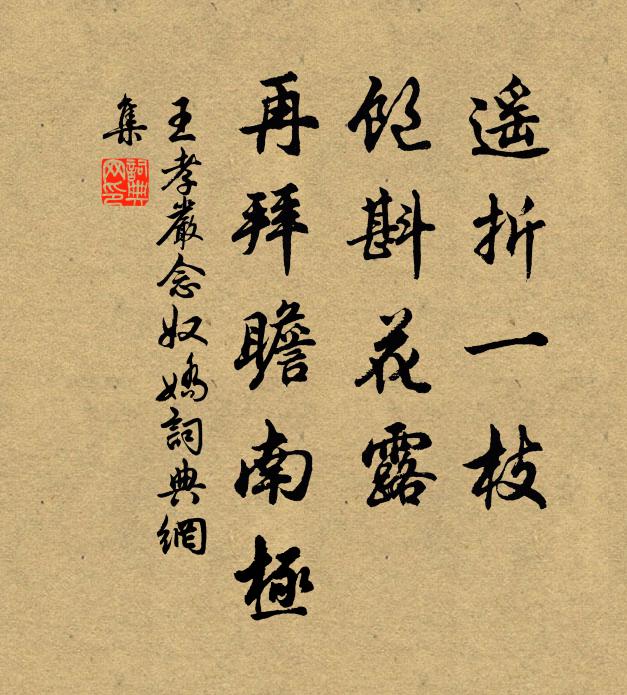 遥折一枝
飽斟花露
再拜瞻南極
王孝嚴念奴嬌詞典網
集
詞典
网印